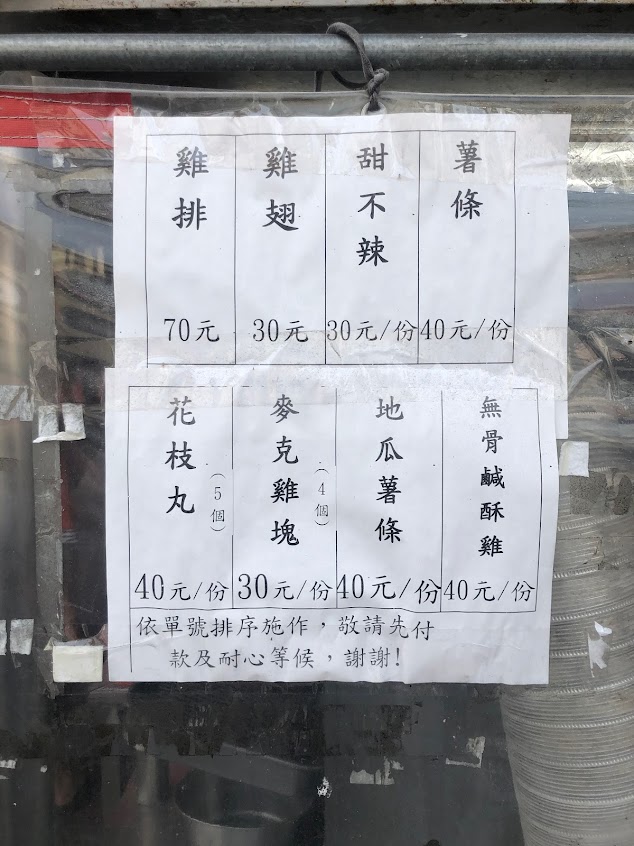 雞排
70元
雞翅
30元
甜不辣
30元/份
薯條
40元/份
花枝丸
(5個)
40元/份
麥克雞塊
(4個)
30元/份
地瓜薯條
40元/份
無骨鹹酥雞
40元/份
依單號排序施作，敬請先付
款及耐心等候，謝謝!